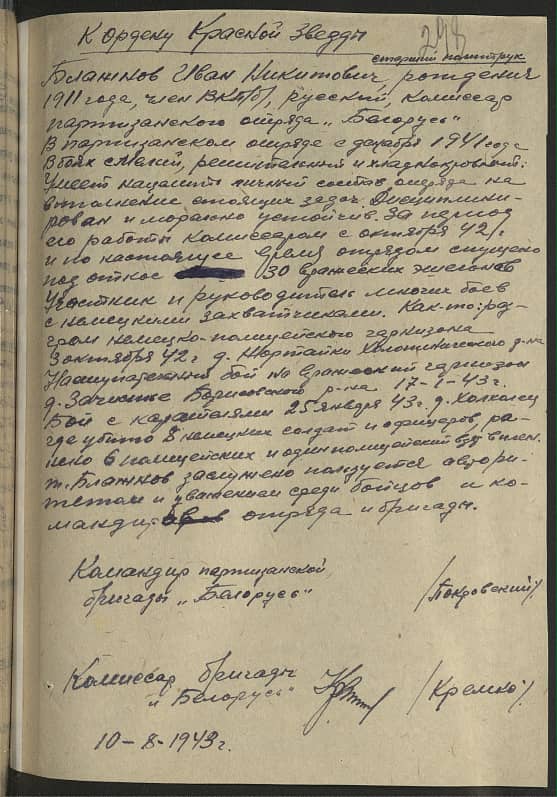 298
К ордену Красной Звезды
старший политрук
Блажнов Иван Никитович, рождения
1911 года, член ВКП(б), русский, комиссар
партизанского отряда „Беларусь"
В партизанском отряде с декабря 1941 года
В боях смелый, решительный и хладнокровный.
Умеет нацелить личный состав отряда на
выполнение стоящих задач. Дисциплини-
рован и морально устойчив. За период
его работы комиссаром с октября 42 г.
и по настоящее время отрядом спущено
под откос 30 вражеских эшелонов
Участник и руководитель многих боев
с немецкими захватчиками. Как-то: раз-
гром немецко-полицейского гарнизона
3 октября 42 г д. Холопеничского р-на
Наступательный бой на вражеский гарнизон
д. Зачистье Борисовского р-на 17-1-43 г.
Бой с карателями 25 января 43 г. д.
где убито 8 немецких солдат и офицеров, ра-
нено 6 полицейских и один полицейский взят в плен.
т. Блажнов заслужено пользуется автори-
тетом и уважением среди бойцов и ко-
мандиров отряда и бригады.
Командир партизанской
бригады „Беларусь" /Покровский/
Комиссар бригады
„Беларусь" /Кремко/
10-8-1943 г.